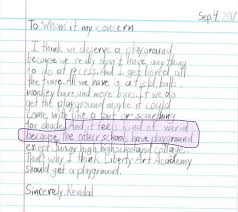 Sep. 4, 201
To Whom it my concern
I think we deserve a playground
because we really don't have any thing
to do at recess. And I get bored all
the time. All we have is a field, balls,
monkey bars, and more bars. If we do
get the playground maybe it could
come with like a tant or something
for shade. And it feels kind of weird
because the other school have playground
except Junior high, high school and collage.
That's why I think Liberty Art Academy
should get a playground.
Sincerely, Kendal